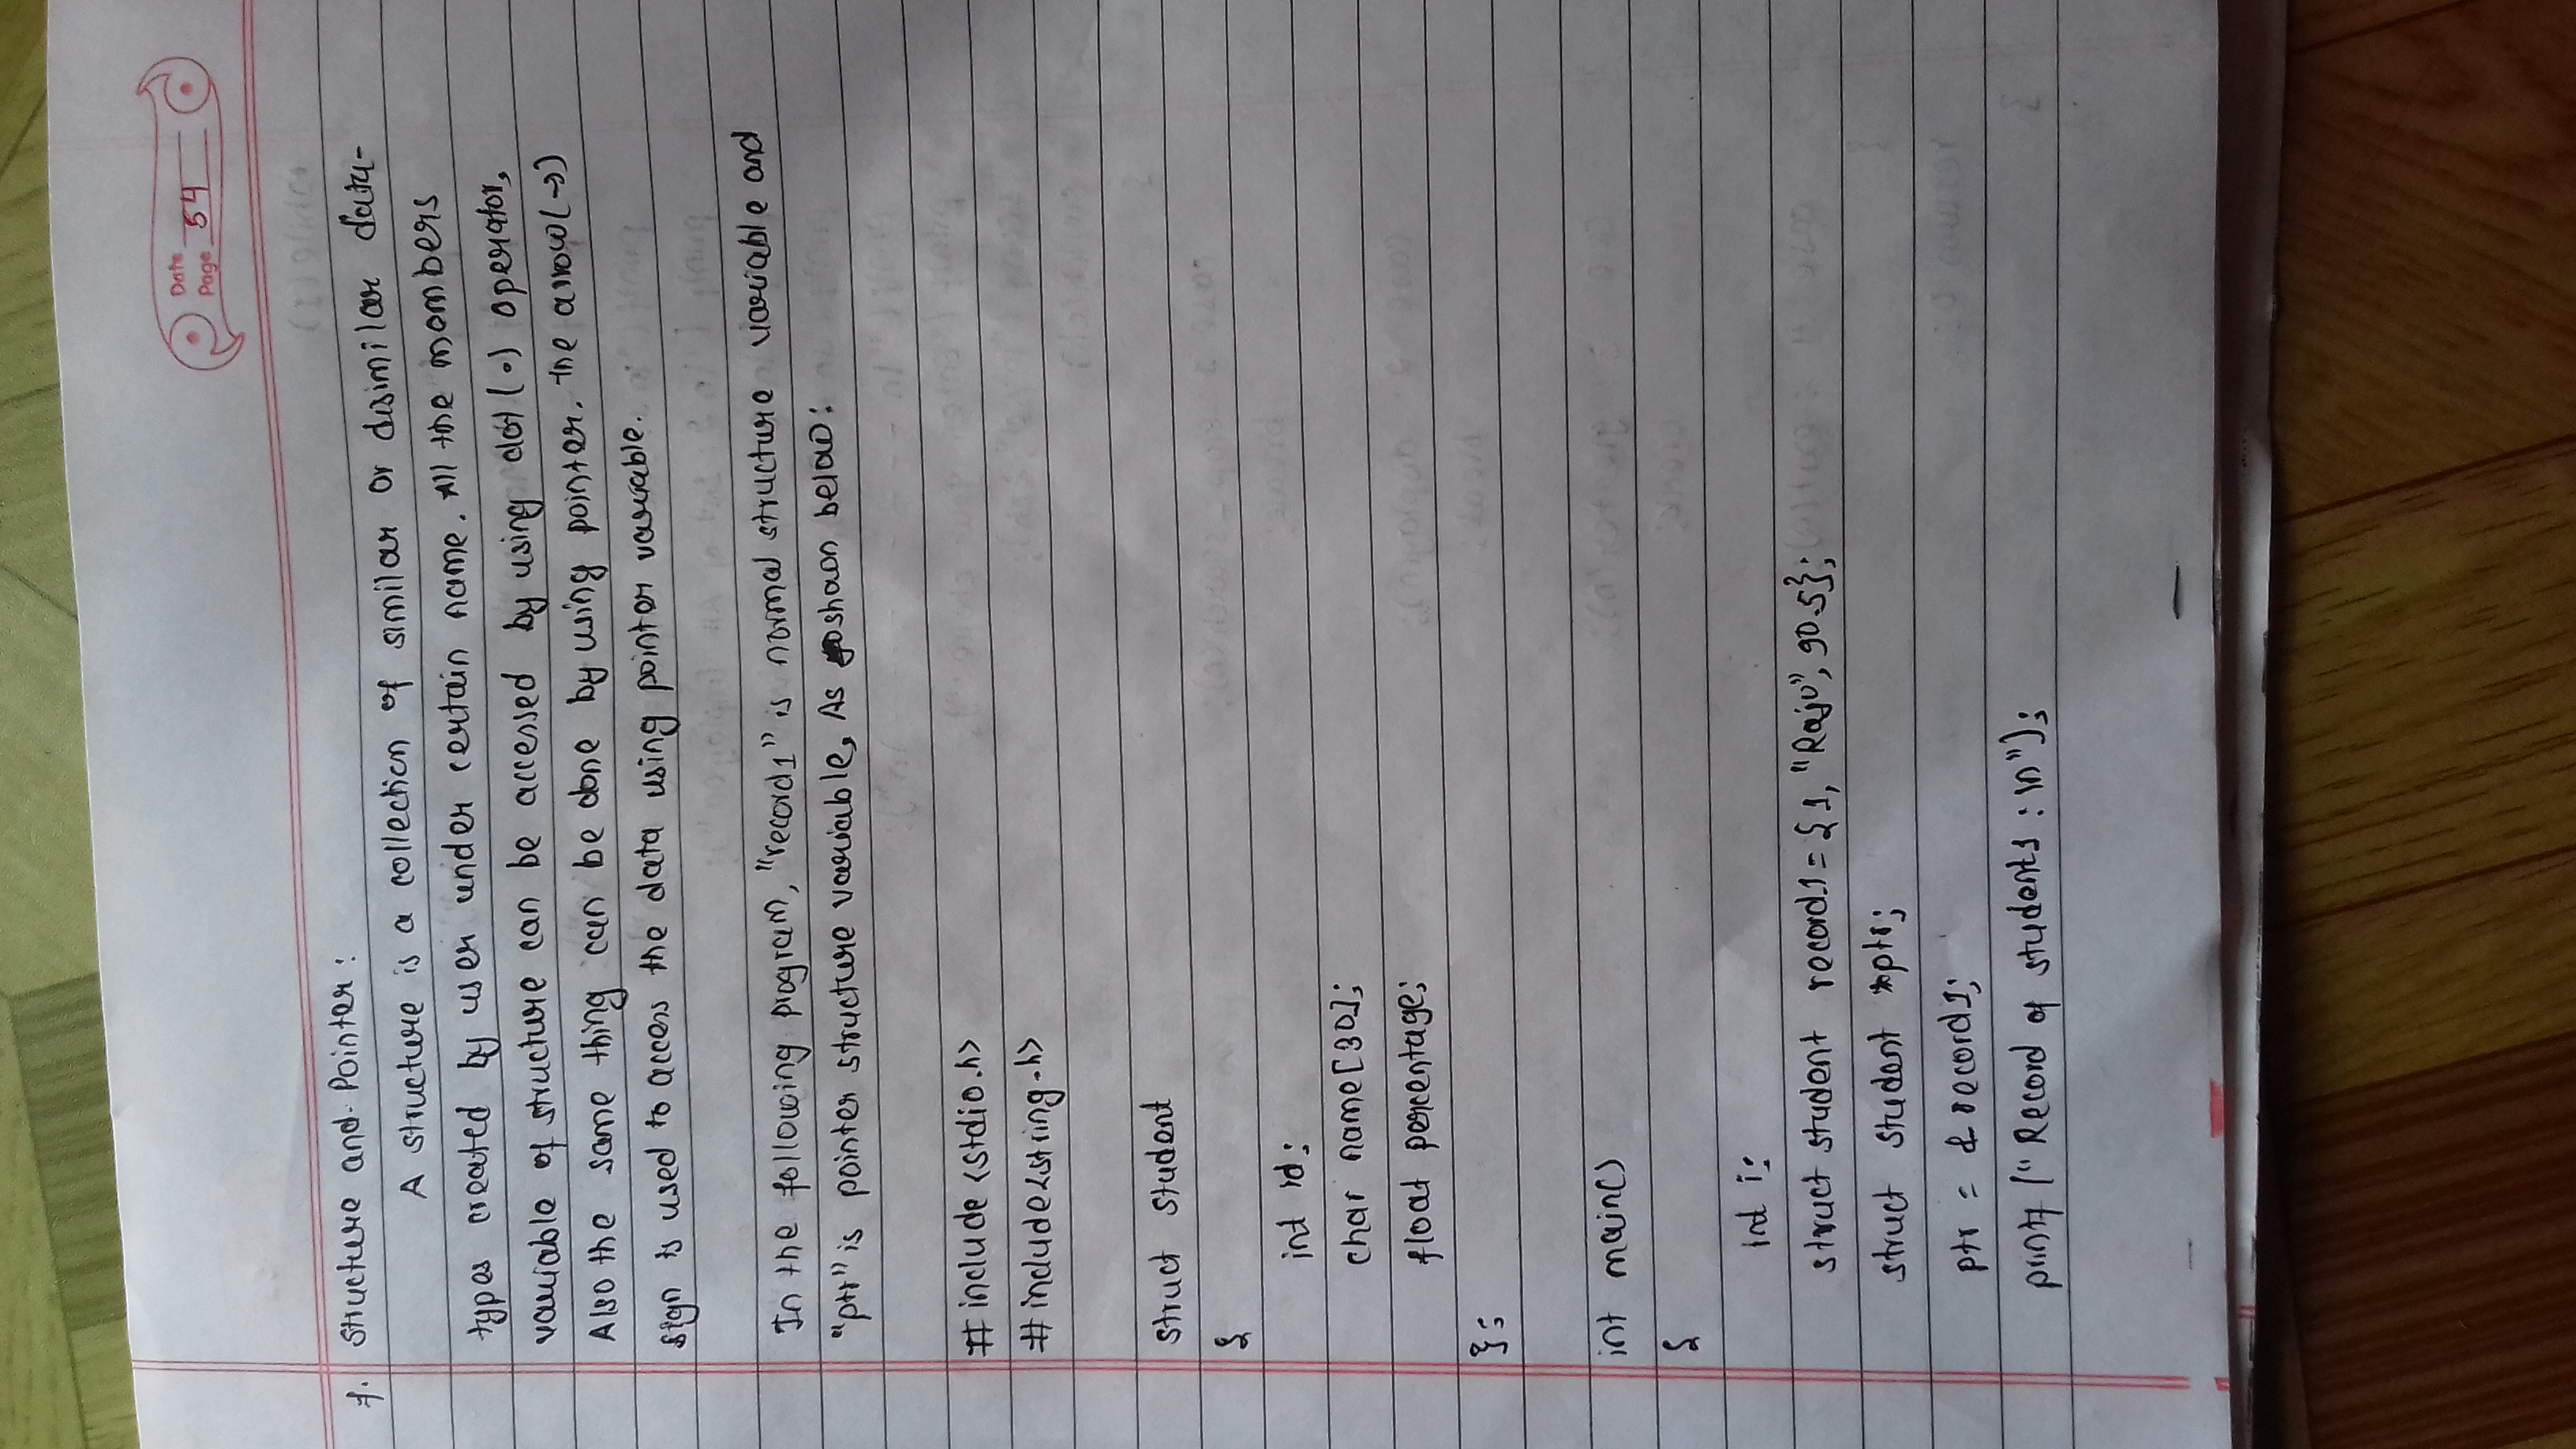 Date
Page 54
7. Structure and Pointer:
A structure is a collection of similar or disimilar data-
types created by user under certain name. All the members
variable of structure can be accessed by using dot (.) operator,
Also the same thing can be done by using pointer. The arrow(->)
sign is used to access the data using pointer variable.
In the following program, "record1" is normal structure variable and
"ptr" is pointer structure variable, As shown below:
#include <stdio.h>
#include<string.h>
struct student
{
int id;
char name[30];
float percentage;
};
int main()
{
int i;
struct student record1 = {1, "Raju", 90.5};
struct student *ptr;
ptr = &record1;
printf ("Record of student1 : \n");